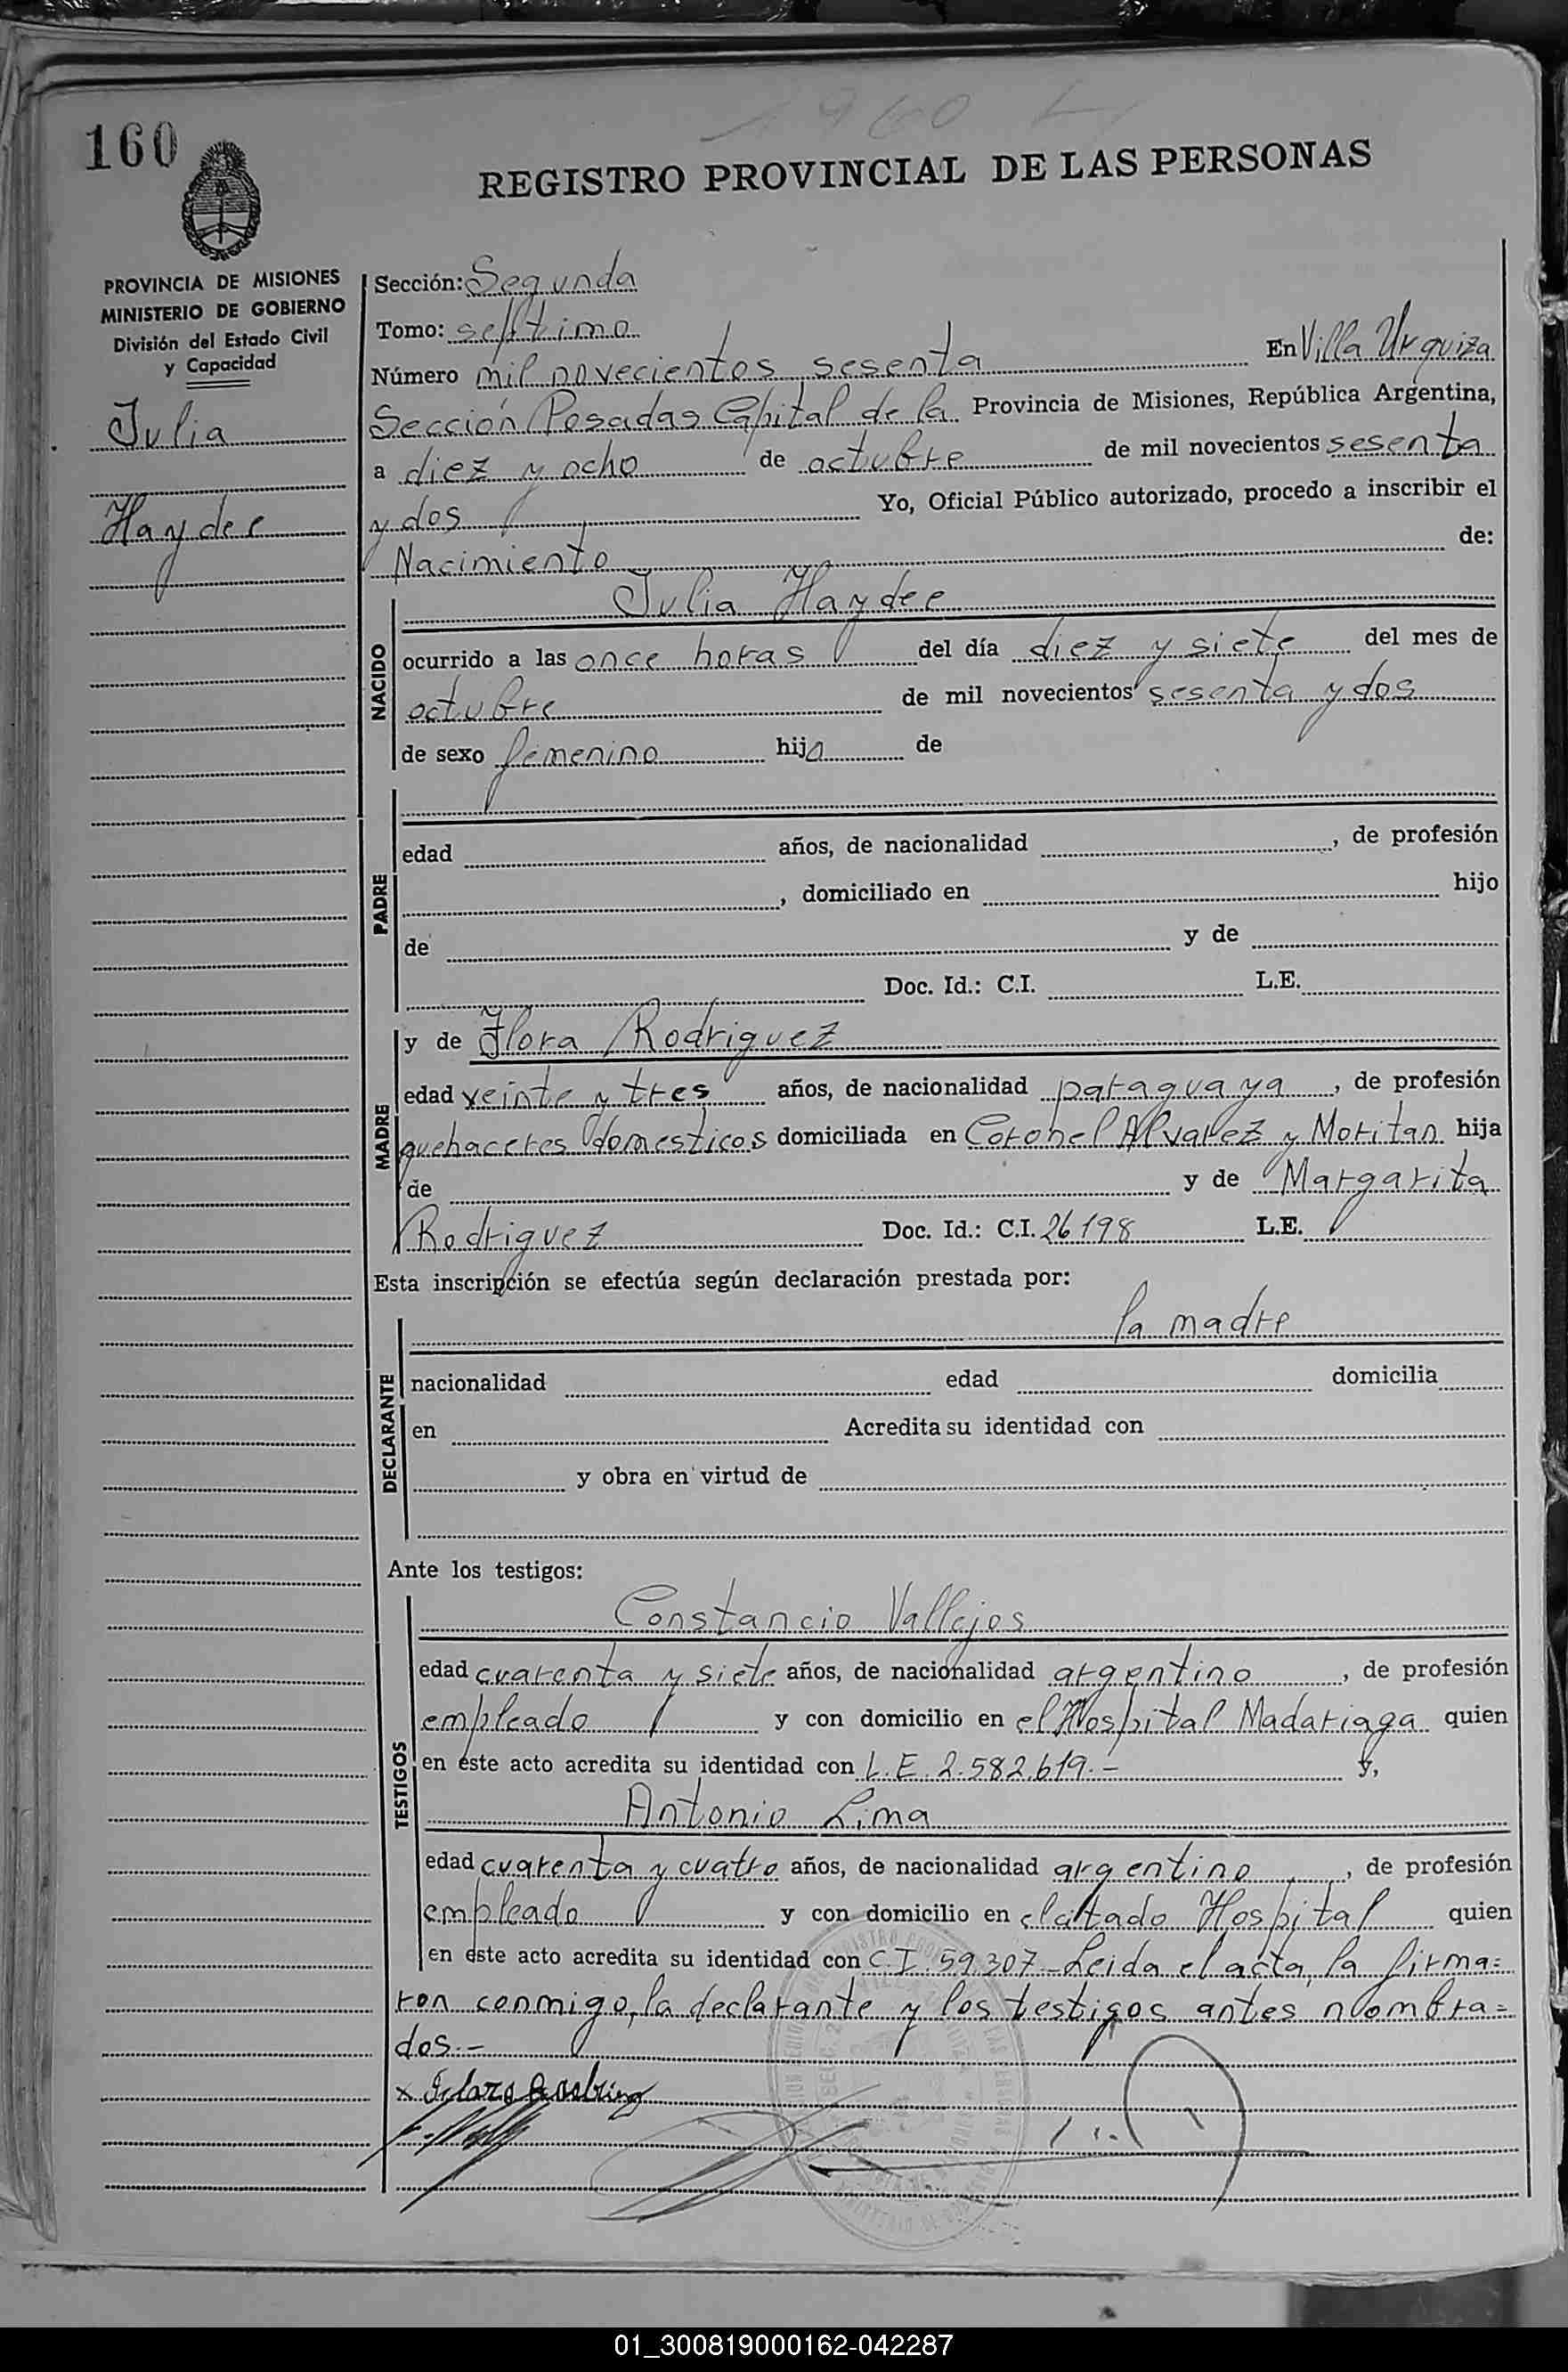 1960
160
REGISTRO PROVINCIAL DE LAS PERSONAS
PROVINCIA DE MISIONES
MINISTERIO DE GOBIERNO
División del Estado Civil
y Capacidad
Julia
Haydee
Sección: Segunda
Tomo: septimo
Número mil novecientos sesenta En Villa Urquiza
Sección Posadas Capital de la Provincia de Misiones, República Argentina,
a diez y ocho de octubre de mil novecientos sesenta
y dos Yo, Oficial Público autorizado, procedo a inscribir el
Nacimiento de:
NACIDO
Julia Haydee
ocurrido a las once horas del día diez y siete del mes de
octubre de mil novecientos sesenta y dos
de sexo femenino hija de
PADRE
edad años, de nacionalidad , de profesión
, domiciliado en hijo
de y de
Doc. Id.: C.I. L.E.
MADRE
y de Flora Rodriguez
edad veinte y tres años, de nacionalidad paraguaya, de profesión
quehaceres domesticos domiciliada en Coronel Alvarez y Moritan hija
de y de Margarita
Rodriguez Doc. Id.: C.I. 26198 L.E.
Esta inscripción se efectúa según declaración prestada por:
DECLARANTE
la madre
nacionalidad edad domicilia
en Acredita su identidad con
y obra en virtud de
Ante los testigos:
TESTIGOS
Constancio Vallejos
edad cuarenta y siete años, de nacionalidad argentino, de profesión
empleado y con domicilio en el Hospital Madariaga quien
en este acto acredita su identidad con L.E. 2.582.619.- y,
Antonio Lima
edad cuarenta y cuatro años, de nacionalidad argentino, de profesión
empleado y con domicilio en el citado Hospital quien
en este acto acredita su identidad con C.I. 59.307- Leida el acta, la firma=
ron conmigo, la declarante y los testigos antes nombra=
dos.-
01_300819000162-042287